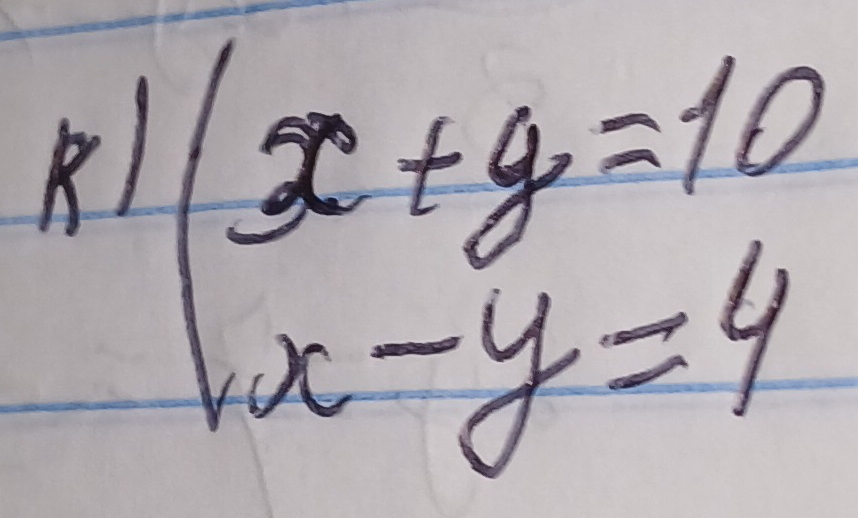 K) ( x + y = 10
x - y = 4